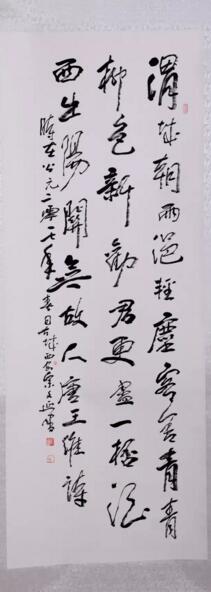 渭城朝雨浥轻塵客舍青青
柳色新勸君更盡一杯酒
西出陽關無故人唐王維詩
時在公元二零一七年春日古城西安宗